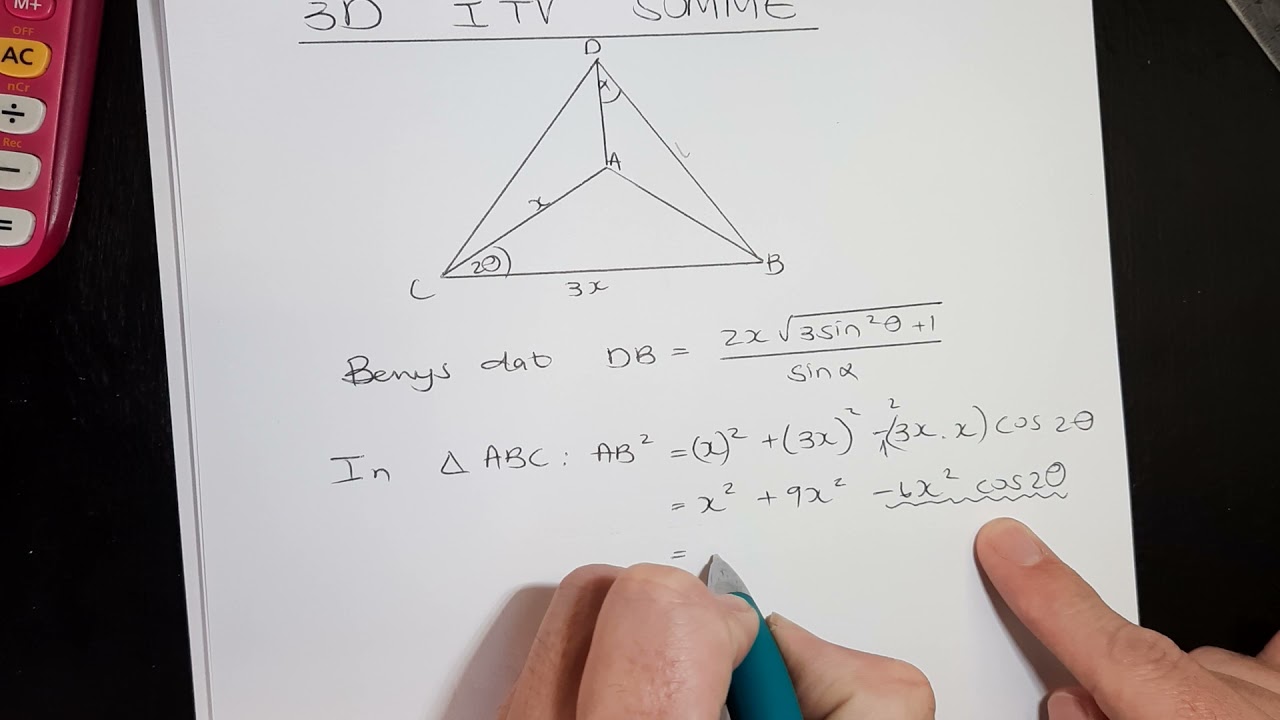 M+
OFF
AC
nCr
÷
Rec
−
=
3D ITV SOMME
D
α
A
x
2θ
C
B
3x
Bewys dat DB = 2x √(3sin²θ + 1) / sin α
In △ ABC : AB² = (x)² + (3x)² − 2(3x . x) cos 2θ
= x² + 9x² − 6x² cos2θ
=